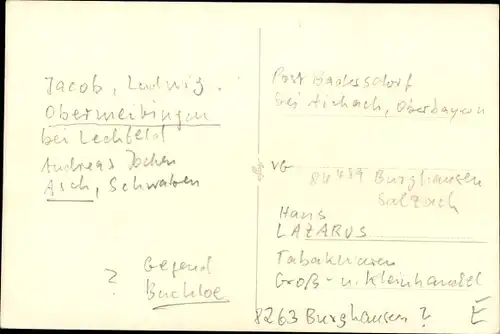 Jacob, Ludwig.
Obermeitingen
bei Lechfeld
Andreas Jochen
Asch, Schwaben
? Gegend
Buchloe
Post
bei Aichach, Oberbayern
VG
84489 Burghausen
Salzach
Hans
LAZARUS
Tabakwaren
Groß- u. Kleinhandel
8263 Burghausen ? E